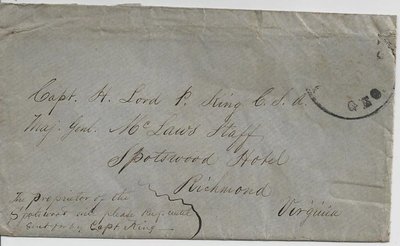 Capt. H. Lord P. King C.S.A.
Maj. Genl. McLaws Staff
Spotswood Hotel
Richmond
Virginia
The proprietor of the
Spotswood will please
sent for by Capt King
GEO.